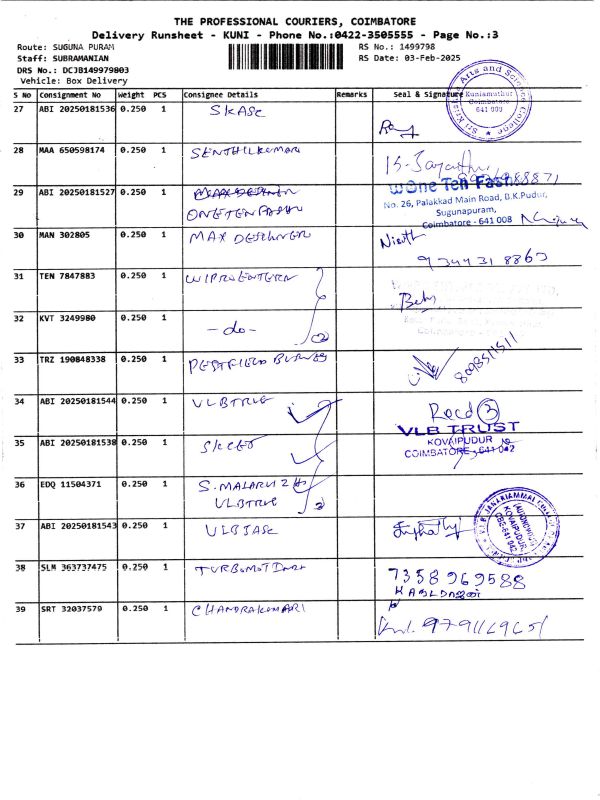 THE PROFESSIONAL COURIERS, COIMBATORE
Delivery Runsheet - KUNI - Phone No.:0422-3505555 - Page No.:3
Route: SUGUNA PURAM RS No.: 1499798
Staff: SUBRAMANIAN RS Date: 03-Feb-2025
DRS No.: DCJB149979803
Vehicle: Box Delivery
S No Consignment No Weight PCS Consignee Details Remarks Seal & Signature
27 ABI 20250181536 0.250 1 SKASC
Sri Krishna Arts and Science College
Kuniamuthur
Coimbatore
641 008
28 MAA 650598174 0.250 1 SENTHILKUMARI
29 ABI 20250181527 0.250 1
ONETENFASHN
One Ten Fash
No. 26, Palakkad Main Road, B.K.Pudur,
Sugunapuram,
Coimbatore - 641 008
30 MAN 302805 0.250 1 MAX DESIGNER
9344318863
31 TEN 7847883 0.250 1
32 KVT 3249980 0.250 1 -do-
33 TRZ 190848338 0.250 1
34 ABI 20250181544 0.250 1 VLBTRUS Recd 3
VLB TRUST
KOVAIPUDUR
COIMBATORE - 641 042
35 ABI 20250181538 0.250 1
36 EDQ 11504371 0.250 1
VLBTRUS
37 ABI 20250181543 0.250 1 VLBJASC
(AUTONOMOUS)
KOVAIPUDUR,
CBE-641 042
38 SLM 363737475 0.250 1 7358969588
39 SRT 32037579 0.250 1 CHANDRAKUMARI